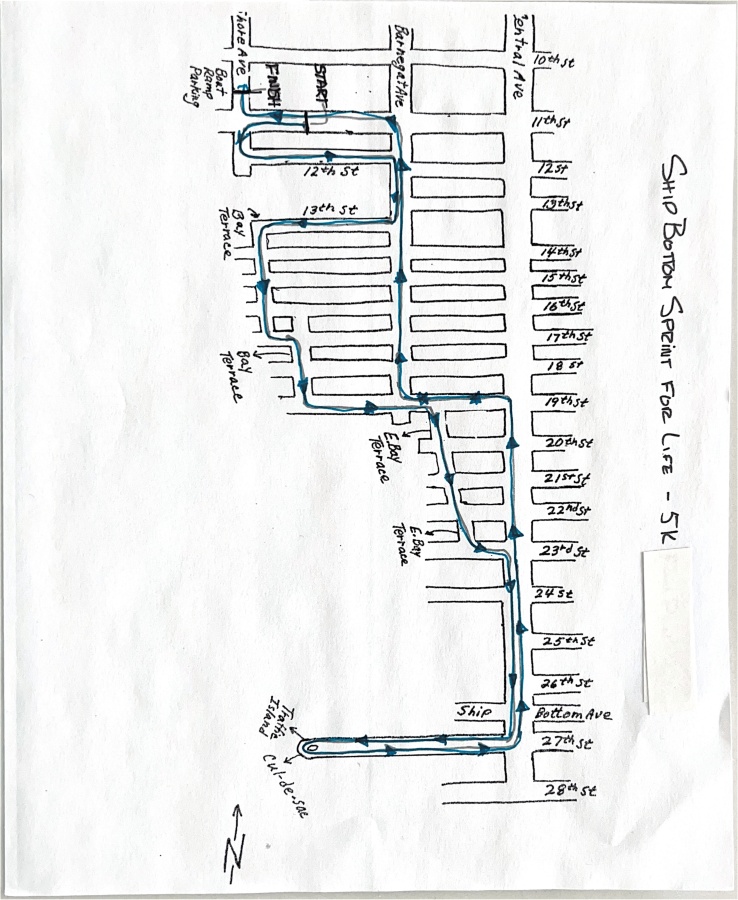 SHIP BOTTOM SPRINT FOR LIFE - 5K
Shore Ave
Barnegat Ave
Central Ave
Boat
Ramp
Parking
FINISH
START
10th St
11th St
12 St
13th St
14th St
15th St
16th St
17th St
18 St
19th St
20th St
21st St
22nd St
23rd St
24 St
25th St
26th St
Ship Bottom Ave
27th St
28th St
12th St
13th St
Bay
Terrace
Bay
Terrace
E. Bay
Terrace
E. Bay
Terrace
Traffic
Island
Cul-de-sac
N